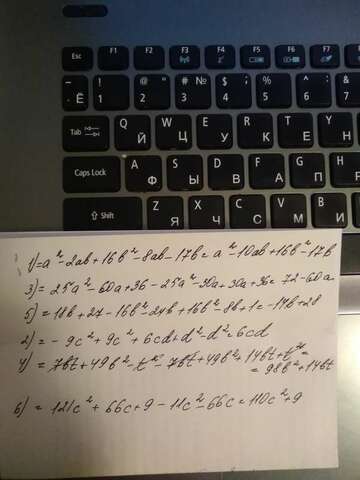 Esc F1 F2 F3 F4 F5 F6 F7
~ Ё ! 1 @ " 2 # № 3 $ ; 4 % 5 ^ : 6 & ? 7
Tab Q Й W Ц E У R К T Е Y Н
Caps Lock A Ф S Ы D В F А G П H Р
Shift Z Я X Ч C С V М
1) = a² - 2ab + 16b² - 8ab - 17b = a² - 10ab + 16b² - 17b
3) = 25a² - 60a + 36 - 25a² - 30a + 30a + 36 = 72 - 60a
5) = 18b + 27 - 16b² - 24b + 16b² - 8b + 1 = -14b + 28
2) = - 9c² + 9c² + 6cd + d² - d² = 6cd
4) = 7bt + 49b² - t² - 7bt + 49b² + 14bt + t² =
= 98b² + 14bt
6) = 121c² + 66c + 9 - 11c² - 66c = 110c² + 9